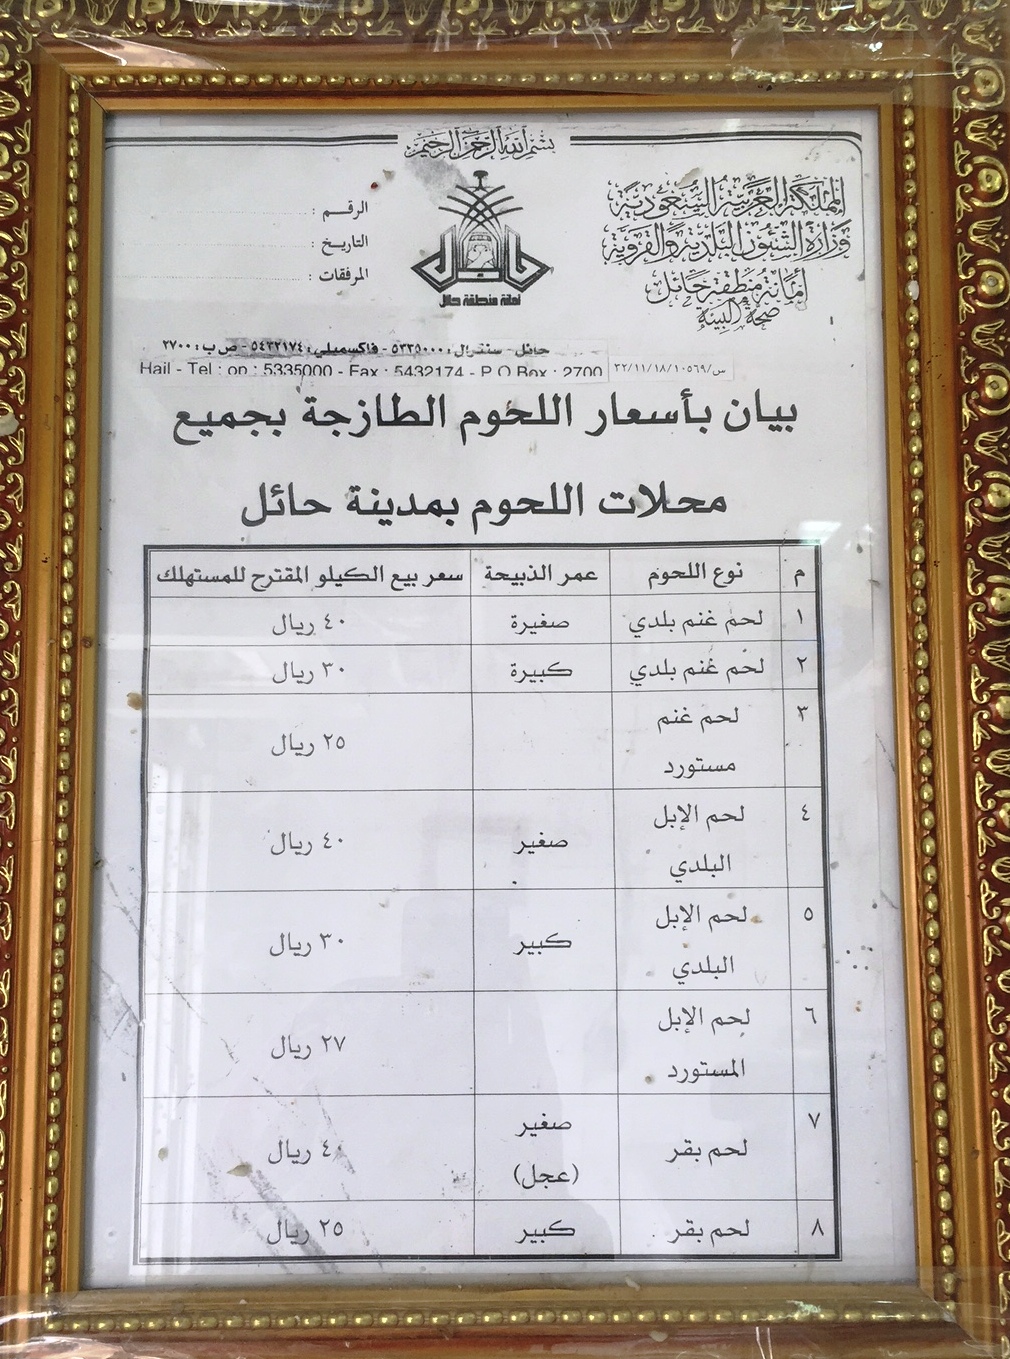 بسم الله الرحمن الرحيم
المملكة العربية السعودية
وزارة الشئون البلدية والقروية
أمانة منطقة حائل
صحة البيئة
الرقم :
التاريخ :
المرفقات :
حائل
أمانة منطقة حائل
حائل - سنترال : ٥٣٣٥٠٠٠ - فاكسميلي : ٥٤٣٢١٧٤ - ص ب : ٢٧٠٠
Hail - Tel : op : 5335000 - Fax : 5432174 - P.O.Box : 2700
س/١٠٥٦٩/٣٢/١١/١٨
بيان بأسعار اللحوم الطازجة بجميع
محلات اللحوم بمدينة حائل
م نوع اللحوم عمر الذبيحة سعر بيع الكيلو المقترح للمستهلك
١ لحم غنم بلدي صغيرة ٤٠ ريال
٢ لحم غنم بلدي كبيرة ٣٠ ريال
٣ لحم غنم
مستورد ٢٥ ريال
٤ لحم الإبل
البلدي صغير ٤٠ ريال
٥ لحم الإبل
البلدي كبير ٣٠ ريال
٦ لحم الإبل
المستورد ٢٧ ريال
٧ لحم بقر صغير
(عجل) ٤٠ ريال
٨ لحم بقر كبير ٢٥ ريال